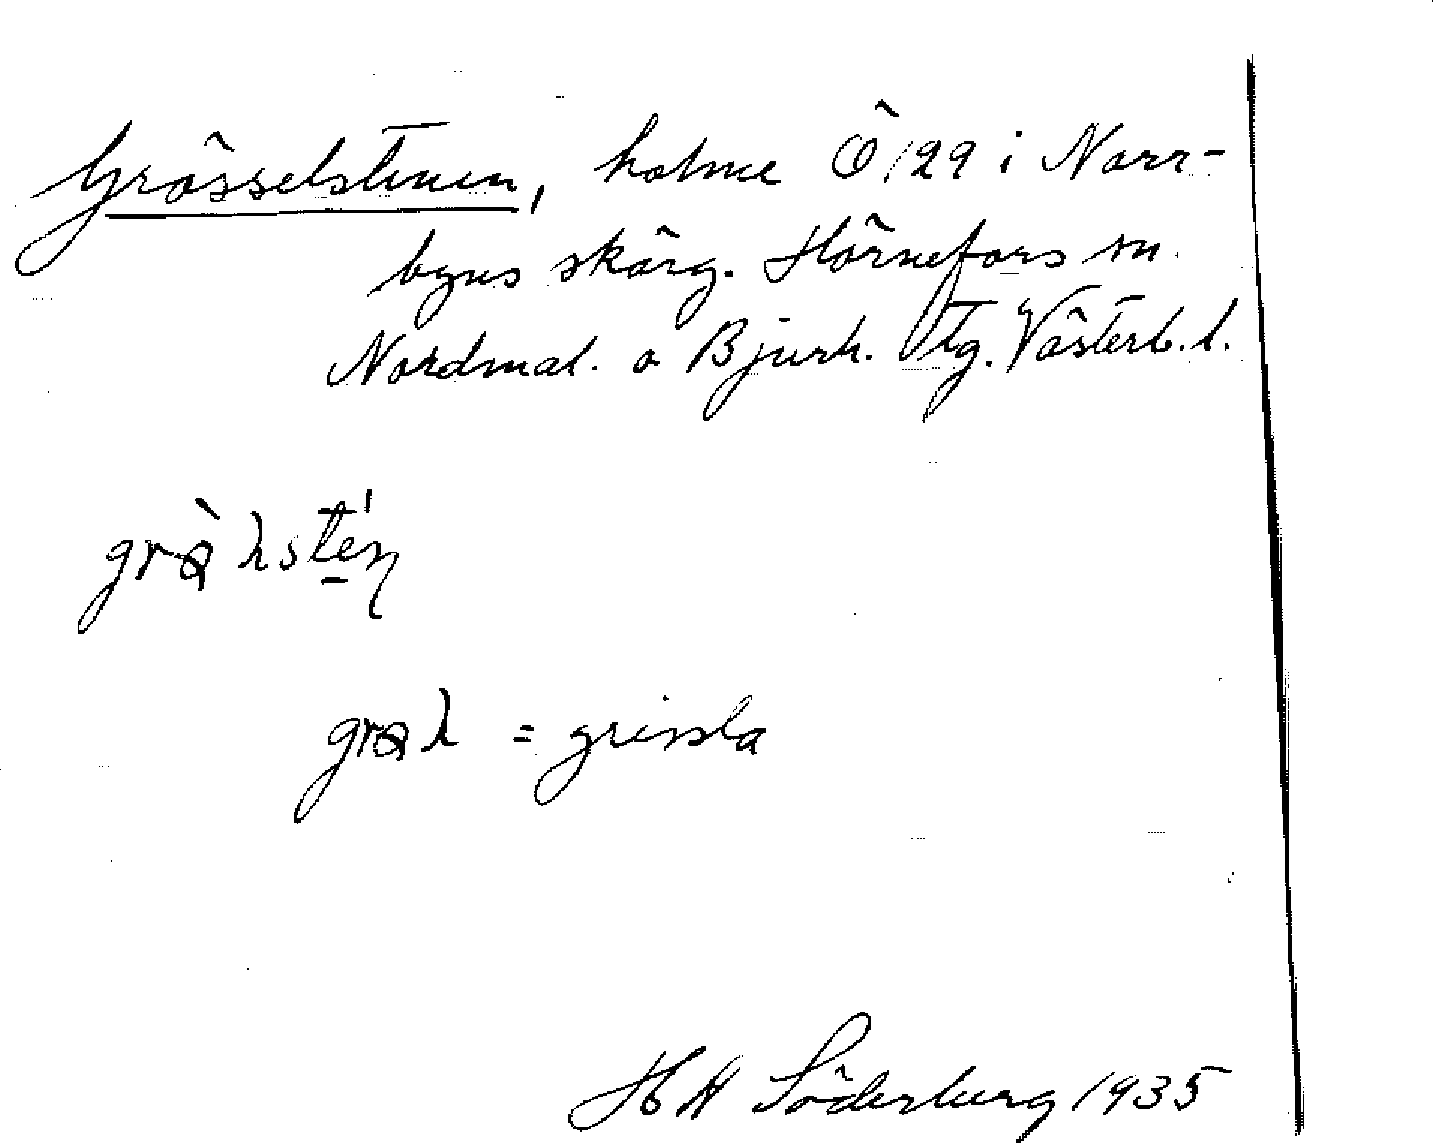 Grösselstenen, holme Ö 129 i Norr-
byns skärg. Hörnefors sn.
Nordmal. o Bjurh. tg. Västerb. l.
= grissla
H A Söderberg 1935